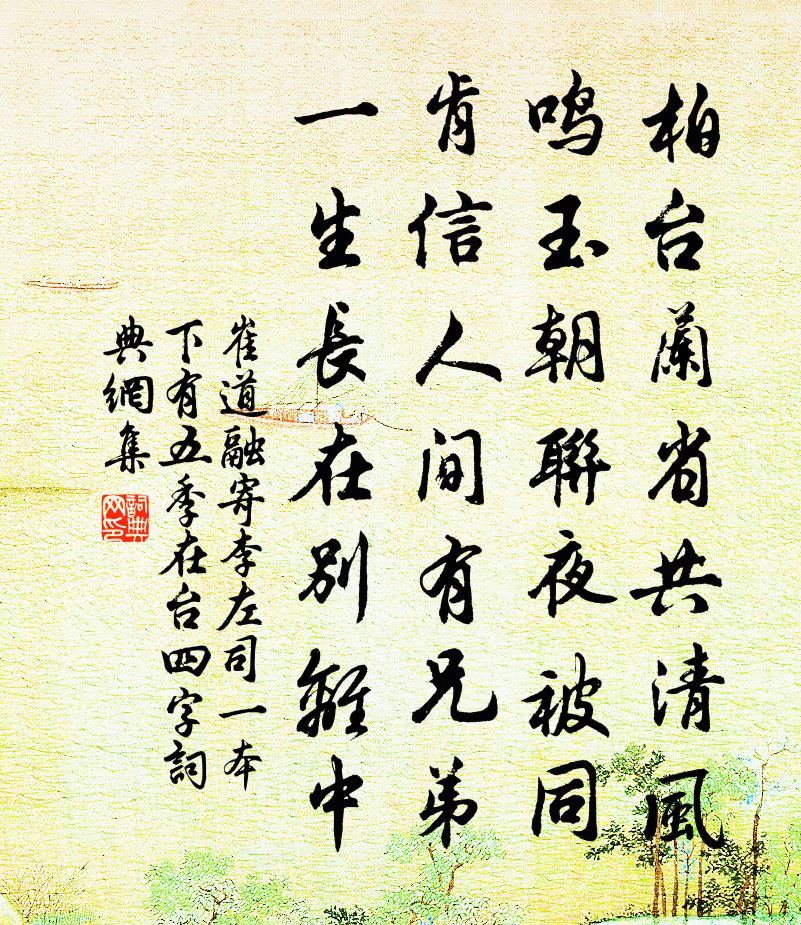 柏台蘭省共清風
鳴玉朝聯夜被同
肯信人间有兄弟
一生長在别離中
崔道融寄李左司一本
下有五季在台四字詞
典網集
詞典
网印